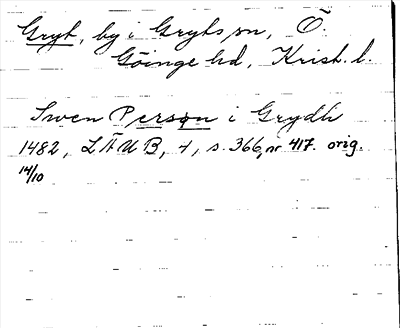 Gryt, by i Gryts sn, Ö.
Göinge hd, Krist. l.
Swen Person i Grydh
1482, LÄUB, 4, s. 366, nr 417. orig.
14/10